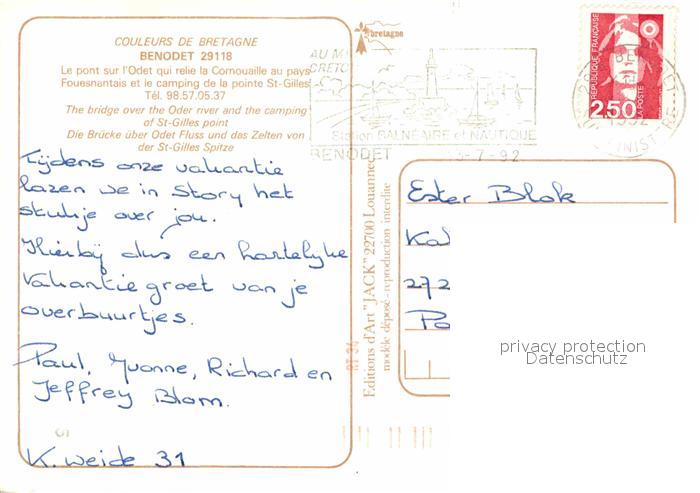 COULEURS DE BRETAGNE
BENODET 29118
Le pont sur l'Odet qui relie la Cornouaille au pays
Fouesnantais et le camping de la pointe St-Gilles
Tél. 98.57.05.37
The bridge over the Oder river and the camping
of St-Gilles point
Die Brücke über Odet Fluss und das Zelten von
der St-Gilles Spitze
Tijdens onze vakantie
lazen we in Story het
stukje over jou.
Hierbij dus een hartelijke
vakantie groet van je
overbuurtjes.
Paul, Yvonne, Richard en
Jeffrey Blom.
K. weide 31
bretagne
Station BALNÉAIRE et NAUTIQUE
BENODET -7-92
RÉPUBLIQUE FRANÇAISE
LA POSTE
2,50
1992
Editions d'Art "JACK" 22700 Louannec
modèle déposé - reproduction interdite
Ester Blok
Ka
272
Po
privacy protection
Datenschutz